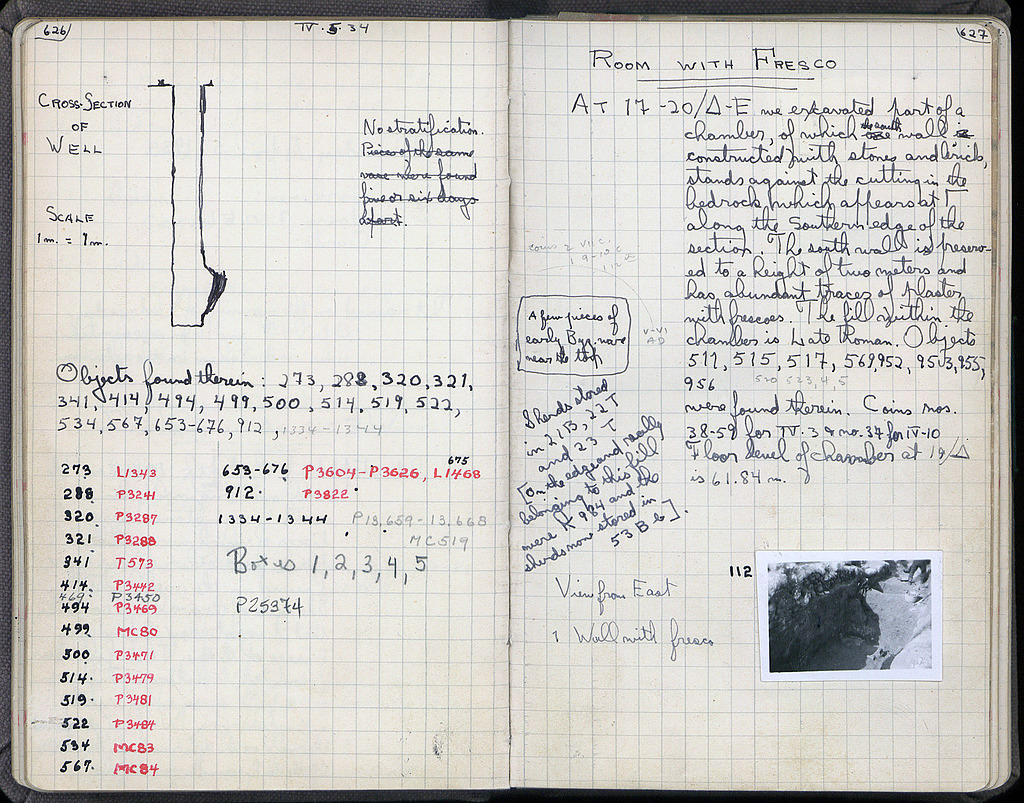 626
IV. 5. 34
CROSS-SECTION
OF
WELL
SCALE
1m. = 1m.
No stratification.
Pieces of the same
ware were found
five or six days
apart.
Objects found therein: 273, 288, 320, 321,
341, 414, 494, 499, 500, 514, 519, 522,
534, 567, 653-676, 912, 1334-1344
273 L1343
288 P3241
320 P3287
321 P3288
341 T573
414. P3442
469. P3450
494 P3469
499 MC80
500 P3471
514. P3479
519. P3481
522 P3484
534 MC83
567. MC84
675
653-676 P3604-P3626, L1468
912. P3822
1334-1344 P13,659-13,668
MC519
Boxes 1, 2, 3, 4, 5
P25374
627
ROOM WITH FRESCO
AT 17-20/Δ-E we excavated part of a
chamber, of which the south wall
constructed with stones and bricks,
stands against the cutting in the
bedrock which appears at Γ
along the Southern edge of the
section. The south wall is preserv-
ed to a height of two meters and
has abundant traces of plaster
with frescoes. The fill within the
chamber is Late Roman. Objects
511, 515, 517, 569, 952, 953, 955,
956 520 523, 4, 5
were found therein. Coins nos.
38-59 for IV-3 & no. 34 for IV-10
Floor level of chamber at 19/Δ
is 61.84 m.
coins 2 VII c.
V-VI
AD
A few pieces of
early Byz. ware
near the top
Sherds stored
in 21B, 22 T
and 23 T
[On the edge and really
belonging to this fill
were K 984 and the
sherds now stored in
53 B b].
View from East
1 Wall with fresco
112